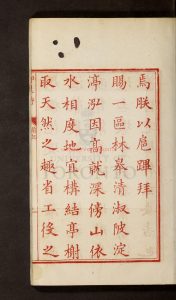 焉朕以扈蹕拜
賜一區林皋清淑陂淀
渟泓因高就深傍山依
水相度地宜構結亭榭
取天然之趣省工役之